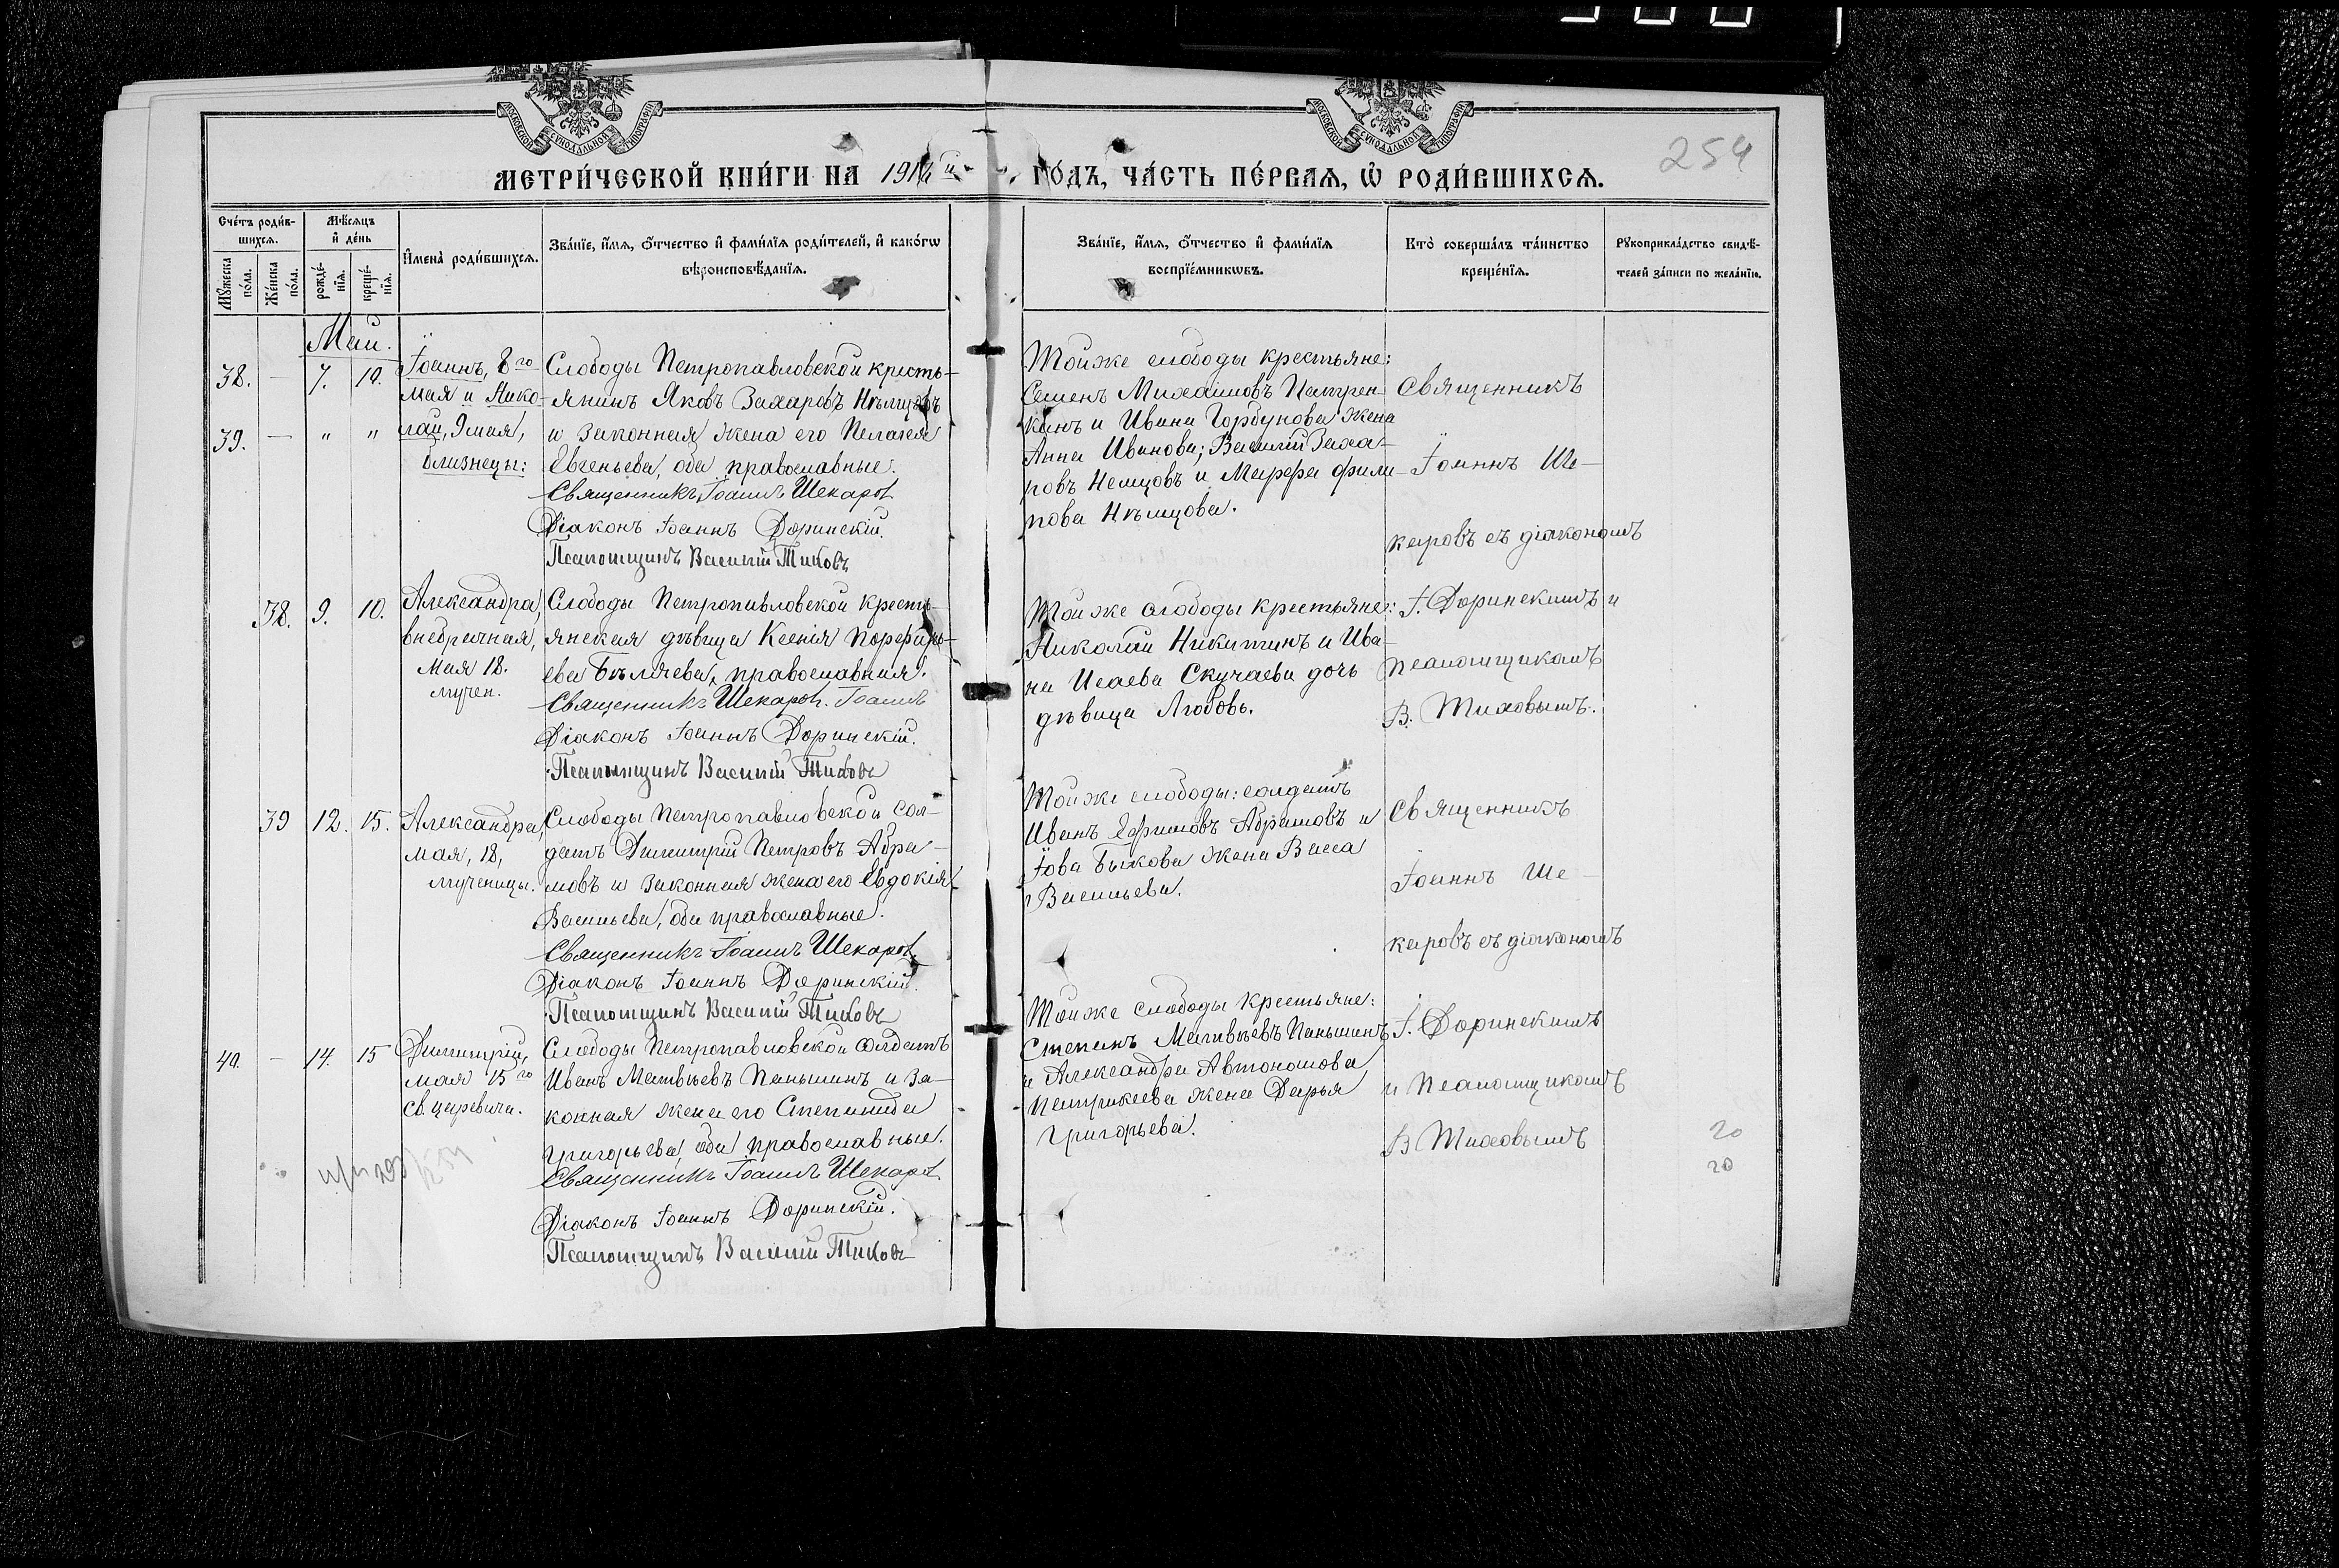 МОСКОВСКОЙ СѴНОДАЛЬНОЙ ТИПОГРАФІИ
МОСКОВСКОЙ СѴНОДАЛЬНОЙ ТИПОГРАФІИ
254
МЕТРИ́ЧЕСКОЙ КНИ́ГИ НА
ГО́ДЪ, ЧА́СТЬ ПЕ́РВАЯ, Ѡ РОДИ́ВШИХСЯ.
Сче́тъ роди́в-
шихся.
Мꙋ́жеска по́ла.
Же́нска по́ла.
Мѣ́сяцъ
и҆ де́нь
рожде́-
нїя.
креще́-
нїя.
И҆мена̀ роди́вшихся.
Зва́нїе, и҆́мя, ѻ҆́тчество и҆ фами́лїя роди́телей, и҆ како́гѡ
вѣроисповѣ́данїя.
Зва́нїе, и҆́мя, ѻ҆́тчество и҆ фами́лїя
воспрїе́мникѡвъ.
Кто̀ соверша́лъ та́инство
креще́нїя.
Рꙋкоприкла́дство свидѣ́-
телей за́писи по жела́нїю.
Май.
38. — 7. 10.
39. — " "
Іоаннъ, 8го
мая и Нико-
лай, 9 мая,
близнецы:
Слободы Петропавловской кресть-
янинъ Яковъ Захаровъ Нѣмцовъ
и законная жена его Пелагея
Евгеньева, оба православные.
Священникъ Іоаннъ Шекаровъ
Діаконъ Іоаннъ Доринскій.
Псаломщикъ Василій Тиховъ
Той же слободы крестьяне:
Семенъ Михаиловъ Петрен-
канъ и Ивана Горбунова жена
Анна Иванова; Василій Заха-
ровъ Немцовъ и Марфа Фили-
пова Нѣмцова.
Священникъ
Іоаннъ Ше-
каровъ съ діакономъ
І. Доринскимъ и
псаломщикомъ
В. Тиховымъ.
38. 9. 10.
Александра,
внебрачная,
мая 18.
мучен.
Слободы Петропавловской кресть-
янская дѣвица Ксенія Порфирь-
ева Бѣляева, православная.
Священникъ Шекаровъ. Іоаннъ
Діаконъ Іоаннъ Доринскій.
Псаломщикъ Василій Тиховъ
Той же слободы крестьяне:
Николай Никитинъ и Ива-
на Исаева Скучаева дочь
дѣвица Любовь.
39 12. 15.
Александра,
мая, 18,
мученицы.
Слободы Петропавловской сол-
датъ Димитрій Петровъ Абра-
мовъ и законная жена его Евдокія
Васильева, оба православные.
Священникъ Іоаннъ Шекаровъ
Діаконъ Іоаннъ Доринскій.
Псаломщикъ Василій Тиховъ
Той же слободы: солдатъ
Иванъ Ефимовъ Абрамовъ и
Іова Быкова жена Васса
Васильева.
Священникъ
Іоаннъ Ше-
каровъ съ діакономъ
І. Доринскимъ
и псаломщикомъ
В Тиховымъ
40. — 14. 15
Димитрій,
мая 15го
св. царевича.
Слободы Петропавловской солдатъ
Иванъ Матвѣевъ Паньшинъ и за-
конная жена его Степанида
Григорьева, оба православные.
Священникъ Іоаннъ Шекаровъ
Діаконъ Іоаннъ Доринскій.
Псаломщикъ Василій Тиховъ
Той же слободы крестьяне:
Степанъ Матвѣевъ Паньшинъ
и Александра Автономова
Патрикеева жена Дарья
Григорьева.
20
20